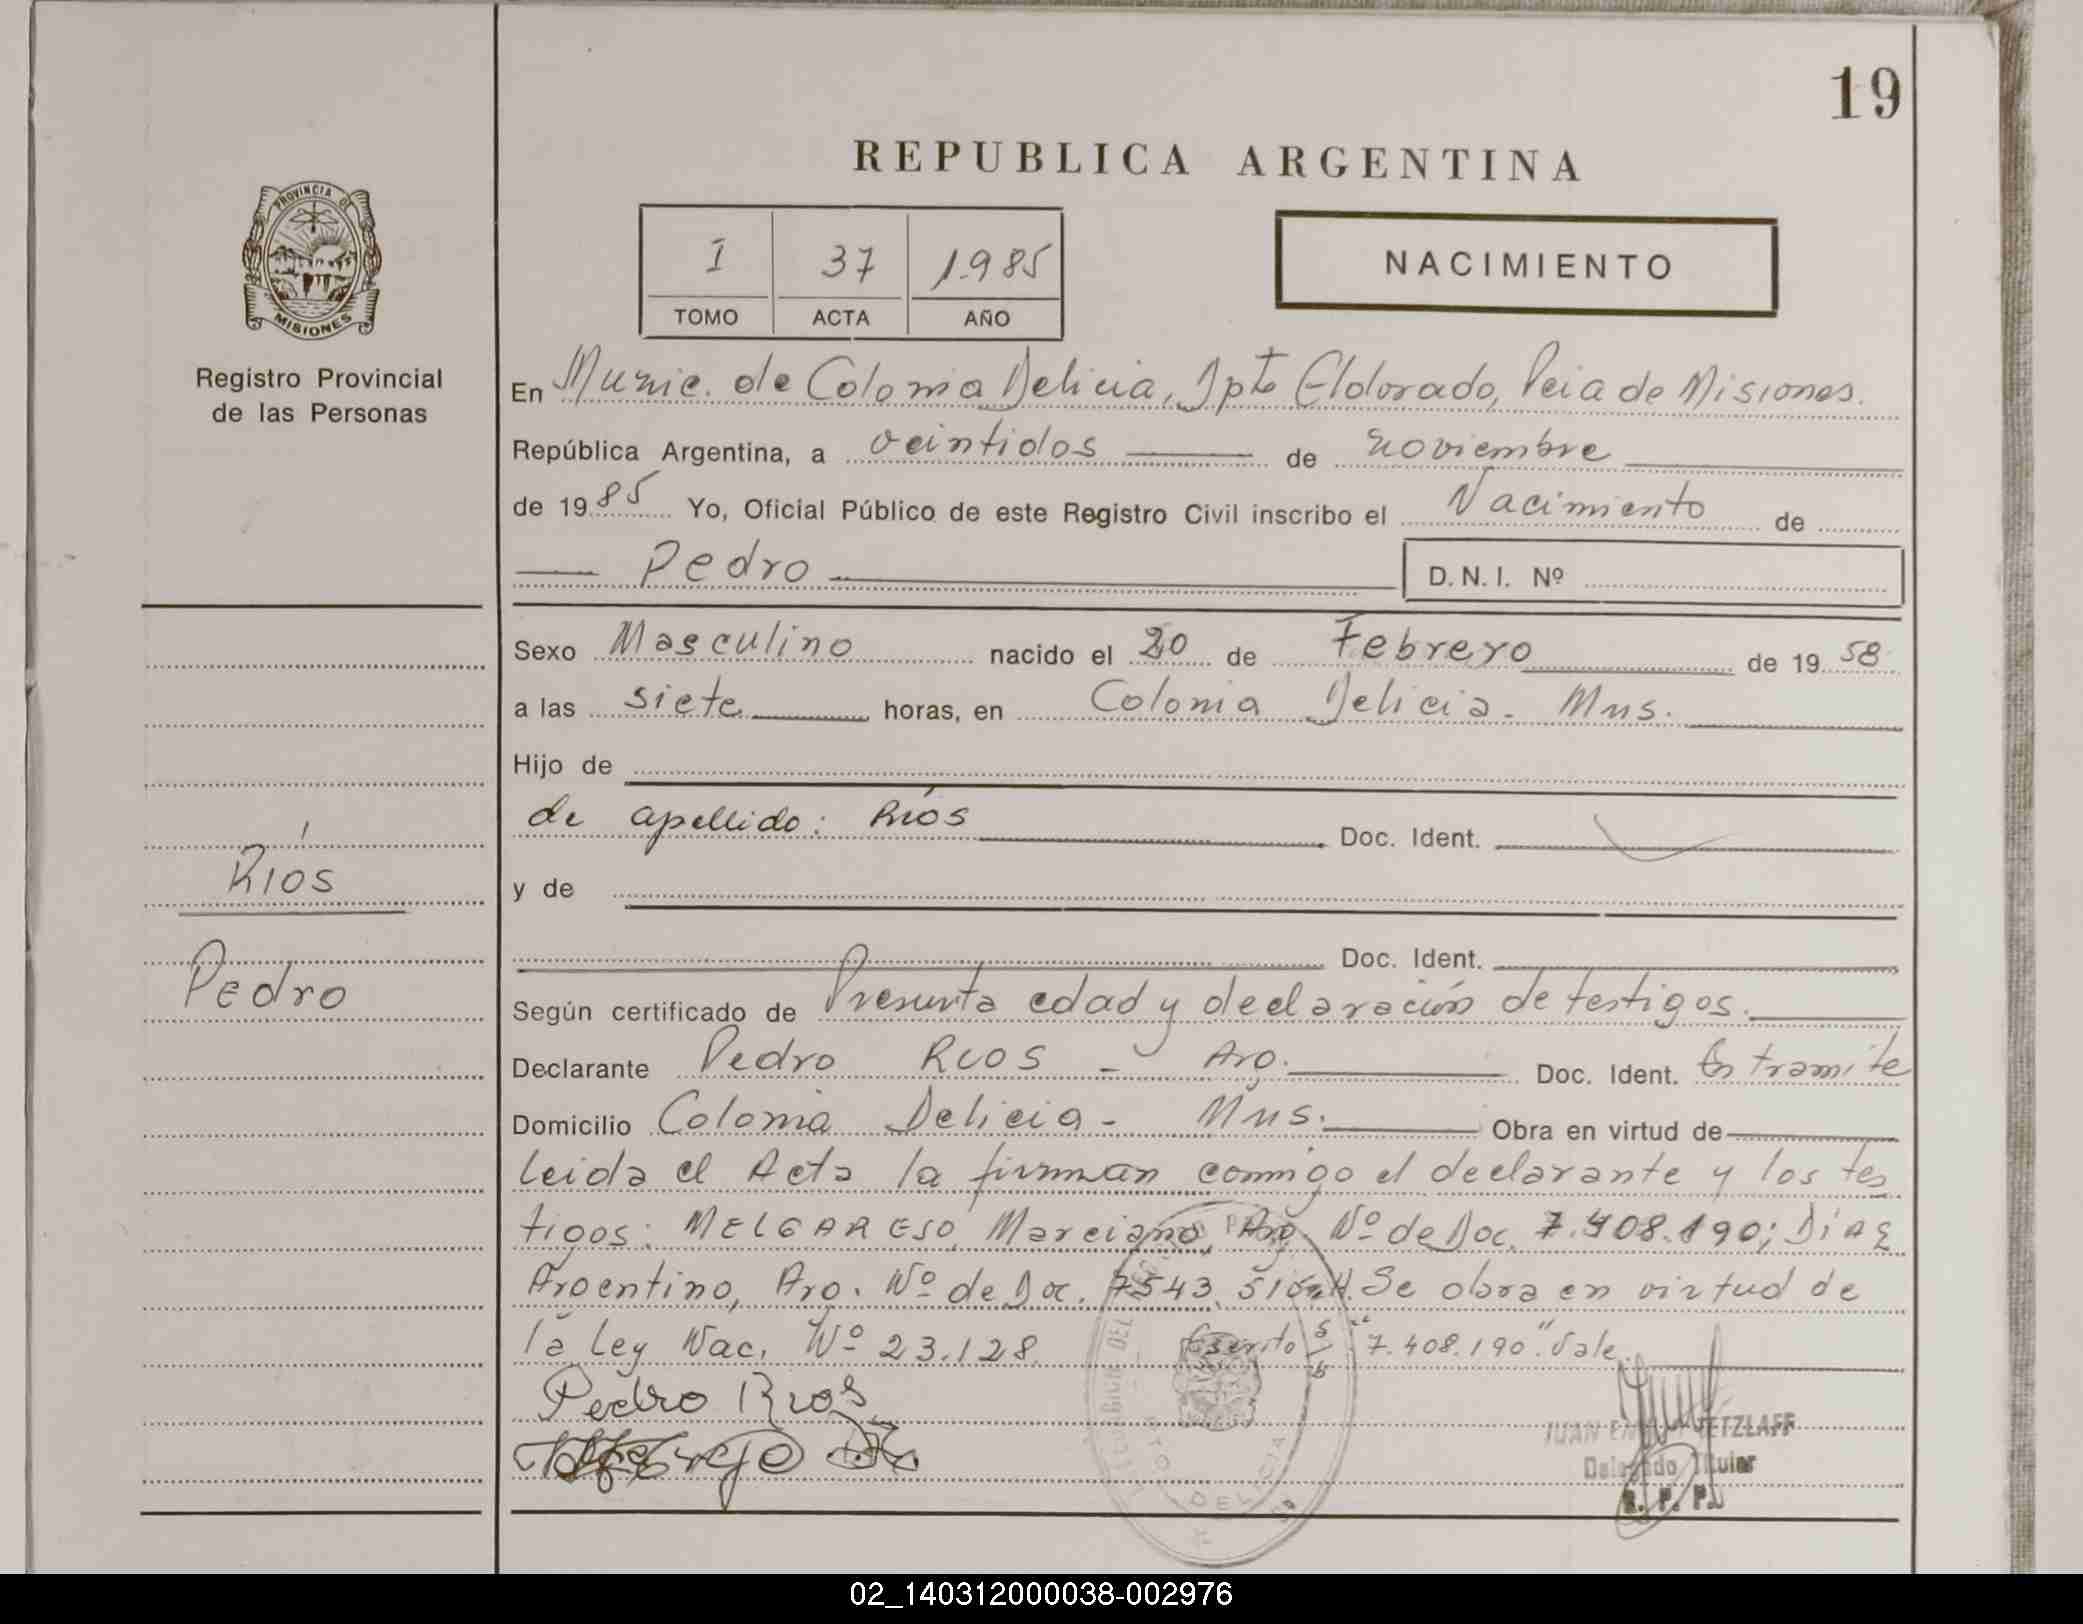 19
REPUBLICA ARGENTINA
PROVINCIA DE
MISIONES
Registro Provincial
de las Personas
I 37 1985
TOMO ACTA AÑO
NACIMIENTO
En Munic. de Colonia Delicia, Dpto Eldorado, Pcia de Misiones.
República Argentina, a veintidos de noviembre
de 1985 Yo, Oficial Público de este Registro Civil inscribo el Nacimiento de
Pedro D.N.I. Nº
Sexo Masculino nacido el 20 de Febrero de 1958
a las siete horas, en Colonia Delicia - Mns.
Hijo de
de apellido: Ríos Doc. Ident.
y de
Doc. Ident.
Ríos
Pedro
Según certificado de Presunta edad y declaración de testigos.
Declarante Pedro RIOS - Arg. Doc. Ident. En tramite
Domicilio Colonia Delicia - Mns. Obra en virtud de
leida el Acta la firman conmigo el declarante y los tes
tigos: MELGAREJO, Marciano, Arg. Nº de Doc. 7.408.190; DIAZ
Argentino, Arg. Nº de Doc. 7543. Se obra en virtud de
la Ley Nac. Nº 23.128. Escrito s/b "7.408.190" Vale.
Pedro Rios
JUAN
Delegado Titular
R. P. P.
DELICIA
02_140312000038-002976